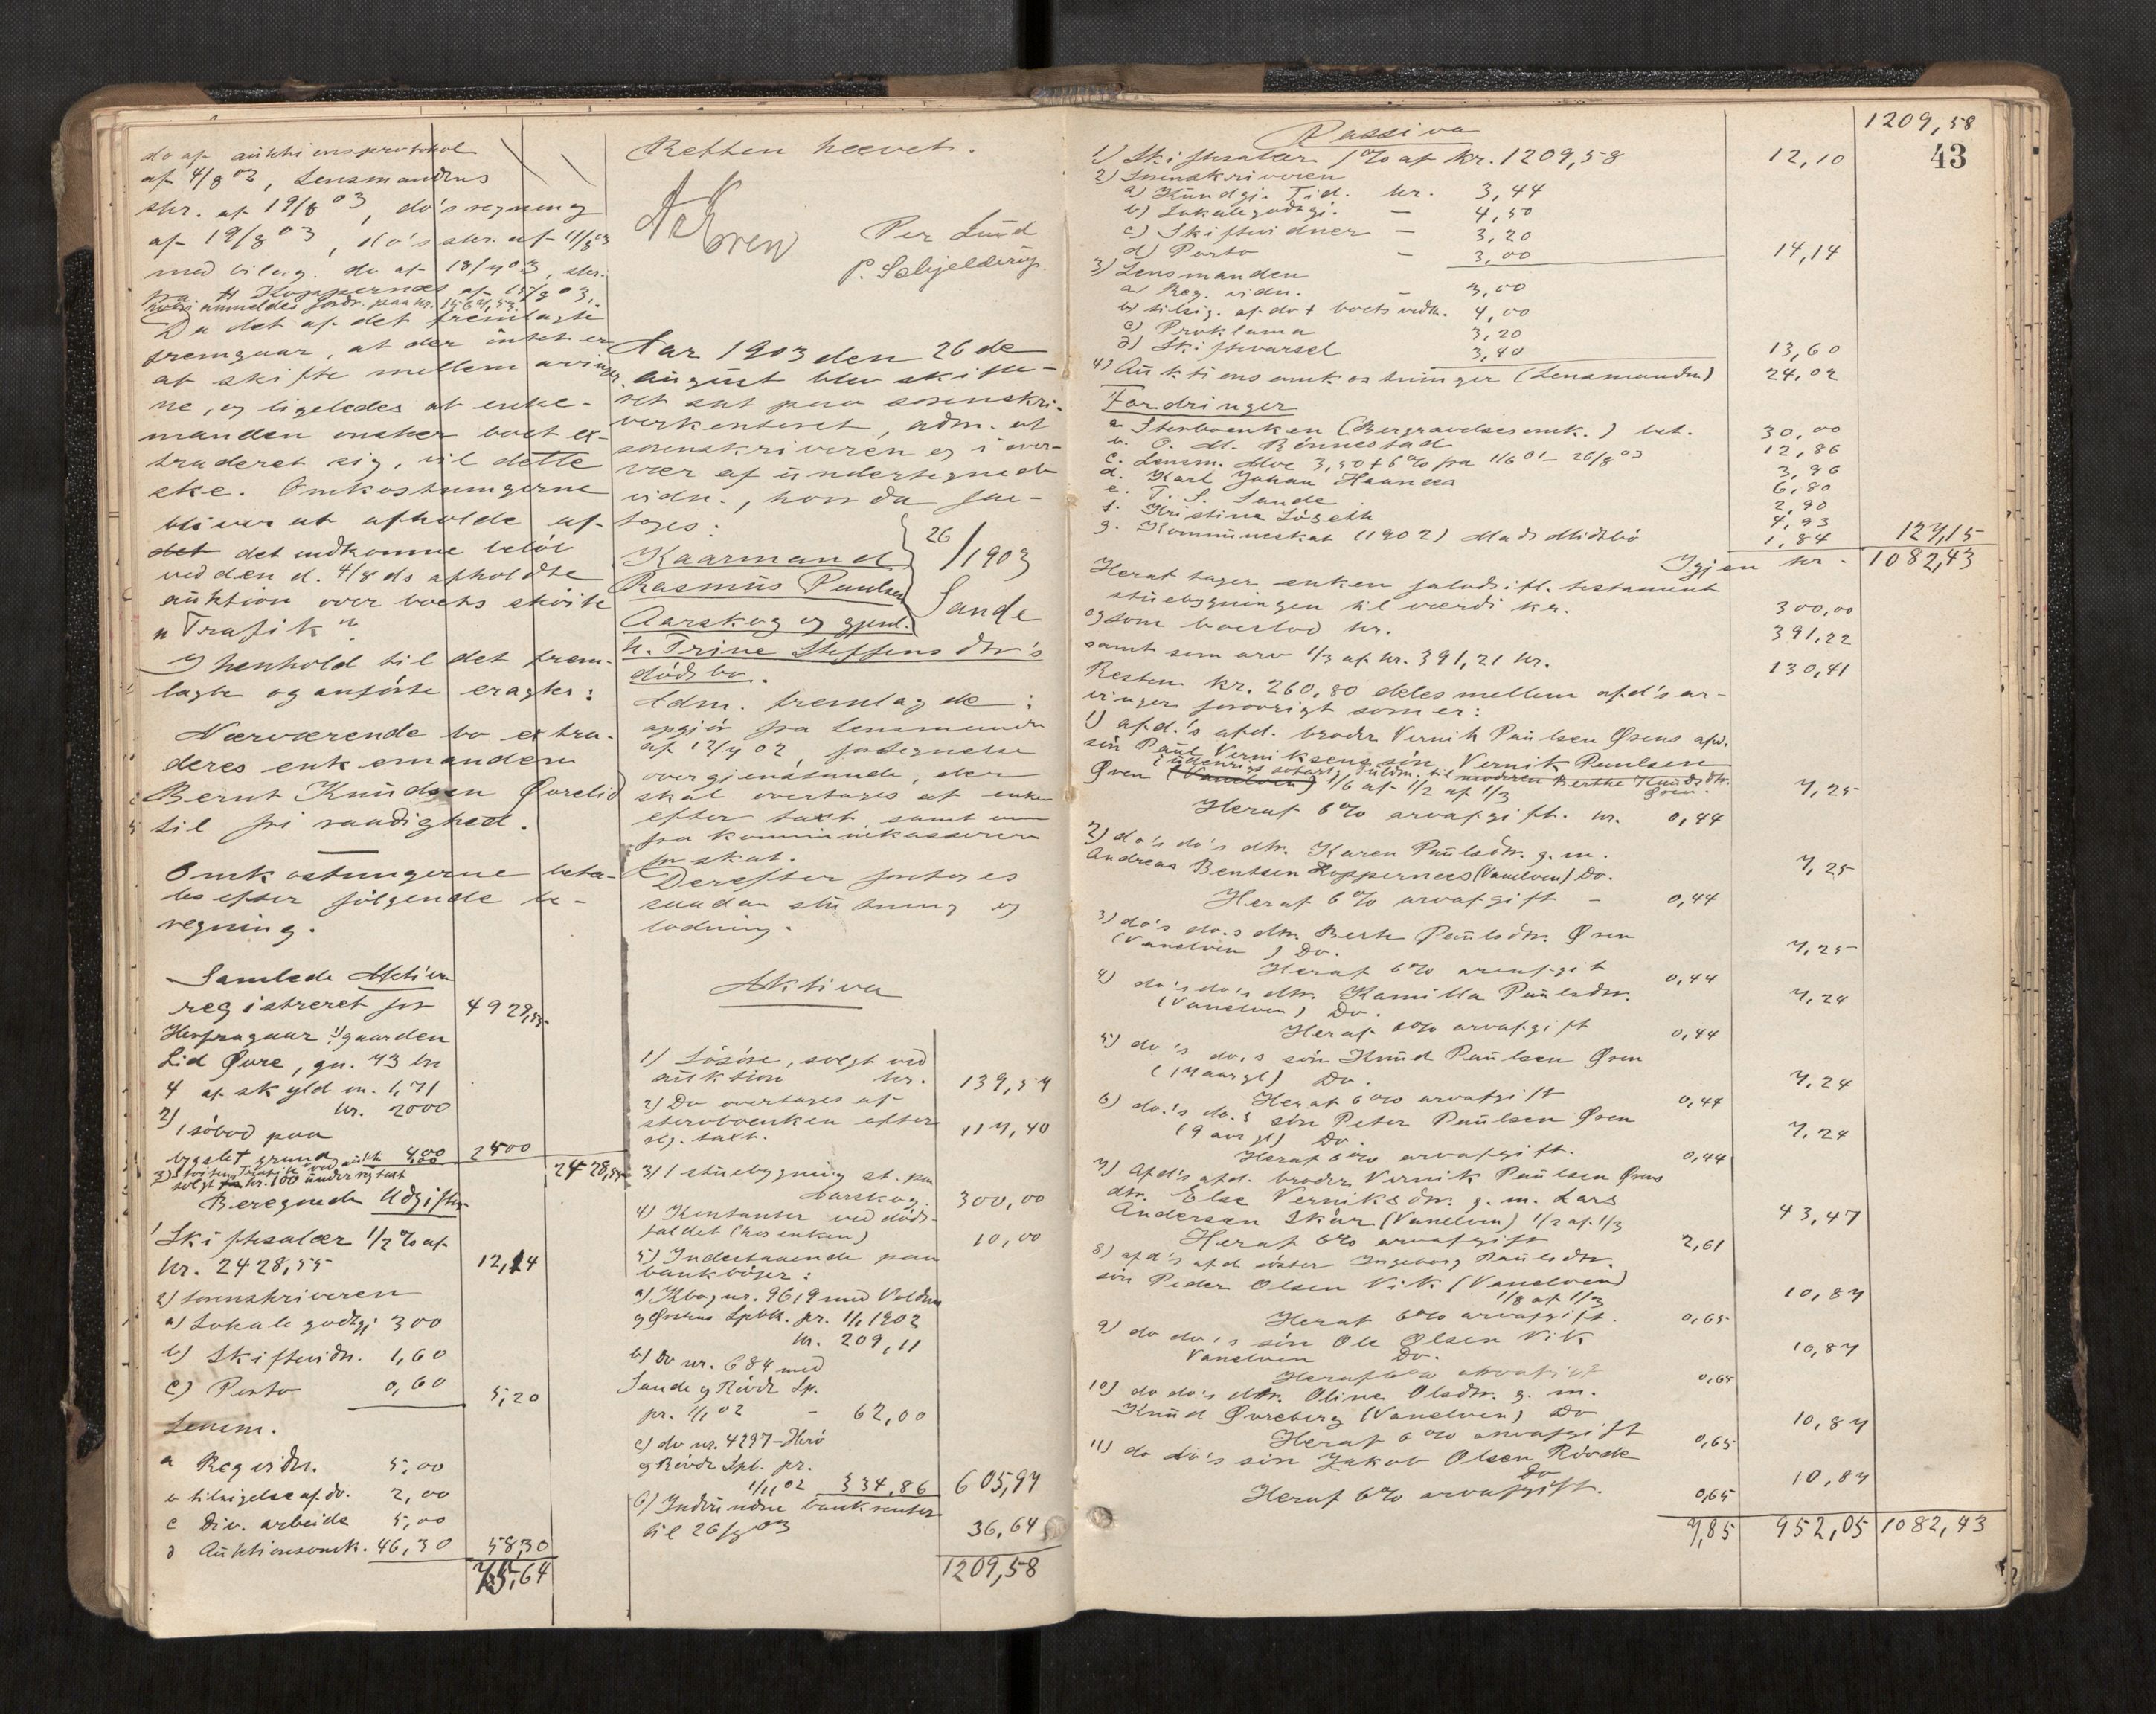 do af auktionsprotokol
af 4/8 03, Lensmandens
skr. af 19/8 03, do's regning
af 19/8 03, do's skr. af 11/8 03
med bilag. do af 18/7 03, skr.
fra H Koppernæs af 15/8 03,
hvori anmeldes fordr. paa kr. 1564,53.
Da det af det fremlagte
fremgaar, at der intet er
at skifte mellem arvinger-
ne, og ligeledes at enke-
manden ønsker boet ex-
traderet sig, vil dette
ske. Omkostningerne
bliver at afholde af
det det indkomne beløb
ved den d. 4/8 ds afholdte
auktion over boets skøite
"Trafik".
I henhold til det frem-
lagte og anførte eragtes:
Nærværende bo extra-
deres enkemanden
Bernt Knudsen Øvrelid
til fri raadighed.
Omkostningerne beta-
les efter følgende be-
regning.
Samlede Aktiva
registreret for 4928,55
Herfra gaar 1) gaarden
Lid Øvre, gn. 73 bn
4 af skyld m. 1,71
kr. 2000
2) 1 søbod paa
bygslet grund 400 2500
3) skøiten "Trafik" ved aukt.
solgt kr. 100 under rg takst
2428,55
Beregnede Udgifter
1 Skiftesalær 1/2 % af
kr. 2428,55 12,14
2) sorenskriveren
a) Lokalegodtgj 3 00
b) Skiftevidn. 1,60
c) Porto 0,60 5,20
Lensm.
a Reg vidn. 5,00
b tilsigelse af do. 2,00
c Div. arbeide 5,00
d Auktionsomk. 46,30 58,30
75,64
Retten hævet.
Per Lund
P. Schjelderup
Aar 1903 den 26 de
august blev skifte-
ret sat paa sorenskri-
verkontoret, adm. af
sorenskriveren og i over-
vær af undertegnede
vidn., hvor da fore-
toges:
Kaarmand
Rasmus Paulsen
Aarskog og gjenl.
h. Trine Steffensdtr's
dødsbo.
26/1903
Sande
Adm. fremlagde:
opgjør fra lensmanden
af 12/7 02, fortegnelse
over gjenstande, der
skal overtages af enken
efter takst samt
fra kommunekassereren
for skat.
Derefter foretoges
saadan slutning og
lodning.
Aktiva
1) Løsøre, solgt ved
auktion kr. 139,57
2) Do overtages af
sterboenken efter
rg. takt. 117,40
3) 1 stuebygning st. paa
Aarskog. 300,00
4) Kontanter ved døds-
faldet (hos enken) 10,00
5) Indestaaende paa
bankbøger:
a) Kbog nr. 9619 med Volden
og Ørstens Spbk. pr. 1/1 1902
kr. 209,11
b) Do nr. 684 med
Sande og Røvde Sp.
pr. 1/1 02 - 62,00
c) do nr. 4297 - Herø
og Røvde Spb. pr.
1/1 02 334,86 605,97
6) Indvundne bankrenter
til 26/8 03 36,64
1209,58
1209,58
43
Passiva
1) Skiftesalær 1% af kr. 1209,58 12,10
2) Sorenskriveren
a) Kundgj. Tid. kr. 3,44
b) Lokalegodtgj. - 4,50
c) Skiftevidner - 3,20
d) Porto - 3,00 14,14
3) Lensmanden
a) Reg. vidn. - 3,00
b) tilsig. af do + boets vedk. 4,00
c) Proklama 3,20
d) Skiftevarsel 3,40 13,60
4) Auktionsomkostninger (Lensmanden) 24,02
Fordringer
a Sterboenken (Begravelsesomk.) bet. 30,00
b. P. M. Rönnestad 12,86
c. Lensm. Moe 3,50 + 6% fra 1/6 01 - 26/8 03 3,96
d. Karl Johan Haanæs 6,80
e. T. S. Sande 2,90
f. Kristine Løseth 4,93
g. Kommuneskat (1902) Mads Midtbö 1,84 127,15
Igjen kr. 1082,43
Heraf tager enken forlods ifl. testament
stuebygningen til værdi kr. 300,00
og som boeslod kr. 391,22
samt som arv 1/3 af kr. 391,21 kr. 130,41
Resten kr. 260,80 deles mellem afd's ar-
vinger forøvrigt som er:
1) afd.'s afd. broder Vernik Paulsen Ørens afd.
søn Paul Verniksens søn Vernik Paulsen
Øren (Vanelven) 1/6 af 1/2 af 1/3 7,25
Heraf 6% arvafgift. kr. 0,44
2) do's do's dtr. Karen Paulsdtr. g. m.
Andreas Bentsen Koppernæs (Vanelven) Do. 7,25
Heraf 6% arvafgift - 0,44
3) do's do.s dtr. Berte Paulsdtr. Øren
(Vanelven) Do. 7,25
Heraf 6% arvafgift 0,44
4) do's do's dtr. Kamilla Paulsdtr.
(Vanelven) Do. 7,24
Heraf 6% arvafgift 0,44
5) do's do,s søn Knud Paulsen Øren
(14aar gl) Do. 7,24
Heraf 6% arvafgift 0,44
6) do.'s do.s søn Peter Paulsen Øren
(9 aar gl) Do. 7,24
Heraf 6% arvafgift. 0,44
7) Afd's afd. broder Vernik Paulsen Ørens
dtr. Else Verniksdtr. g. m. Lars
Andersen Skår (Vanelven) 1/2 af 1/3 43,47
Heraf 6% arvafgift 2,61
8) afd's afd søster Ingeborg Paulsdtr.
søn Peder Olsen Vik (Vanelven)
1/8 af 1/3 10,87
Heraf 6% arvafgift. 0,65
9) do do,s søn Ole Olsen Vik
Vanelven Do. 10,87
Heraf 6% arvafgift 0,65
10) do do's dtr. Oline Olsdtr. g. m.
Knud Øvreberg (Vanelven) Do 10,87
Heraf 6% arvafgift 0,65
11) do do's søn Jakob Olsen Røvde
Do 10,87
Heraf 6% arvafgift. 0,65
7,85 952,05 1082,43